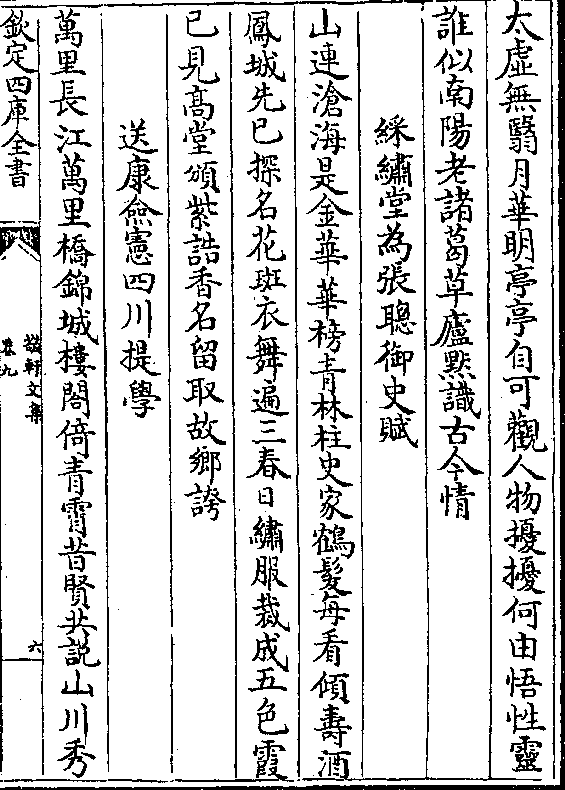 太虛無翳月華明亭亭自可觀人物擾擾何由悟性靈
誰似南陽老諸葛草廬黙識古今情
綵繡堂為張聰御史賦
山連滄海是金華華榜青林柱史家鶴髮每看傾壽酒
鳳城先已探名花斑衣舞遍三春日繡服裁成五色霞
已見髙堂頒紫誥香名留取故鄉誇
送康僉憲四川提學
萬里長江萬里橋錦城樓閣倚青霄昔賢共説山川秀
欽定四庫全書
敬軒文集
卷九
六